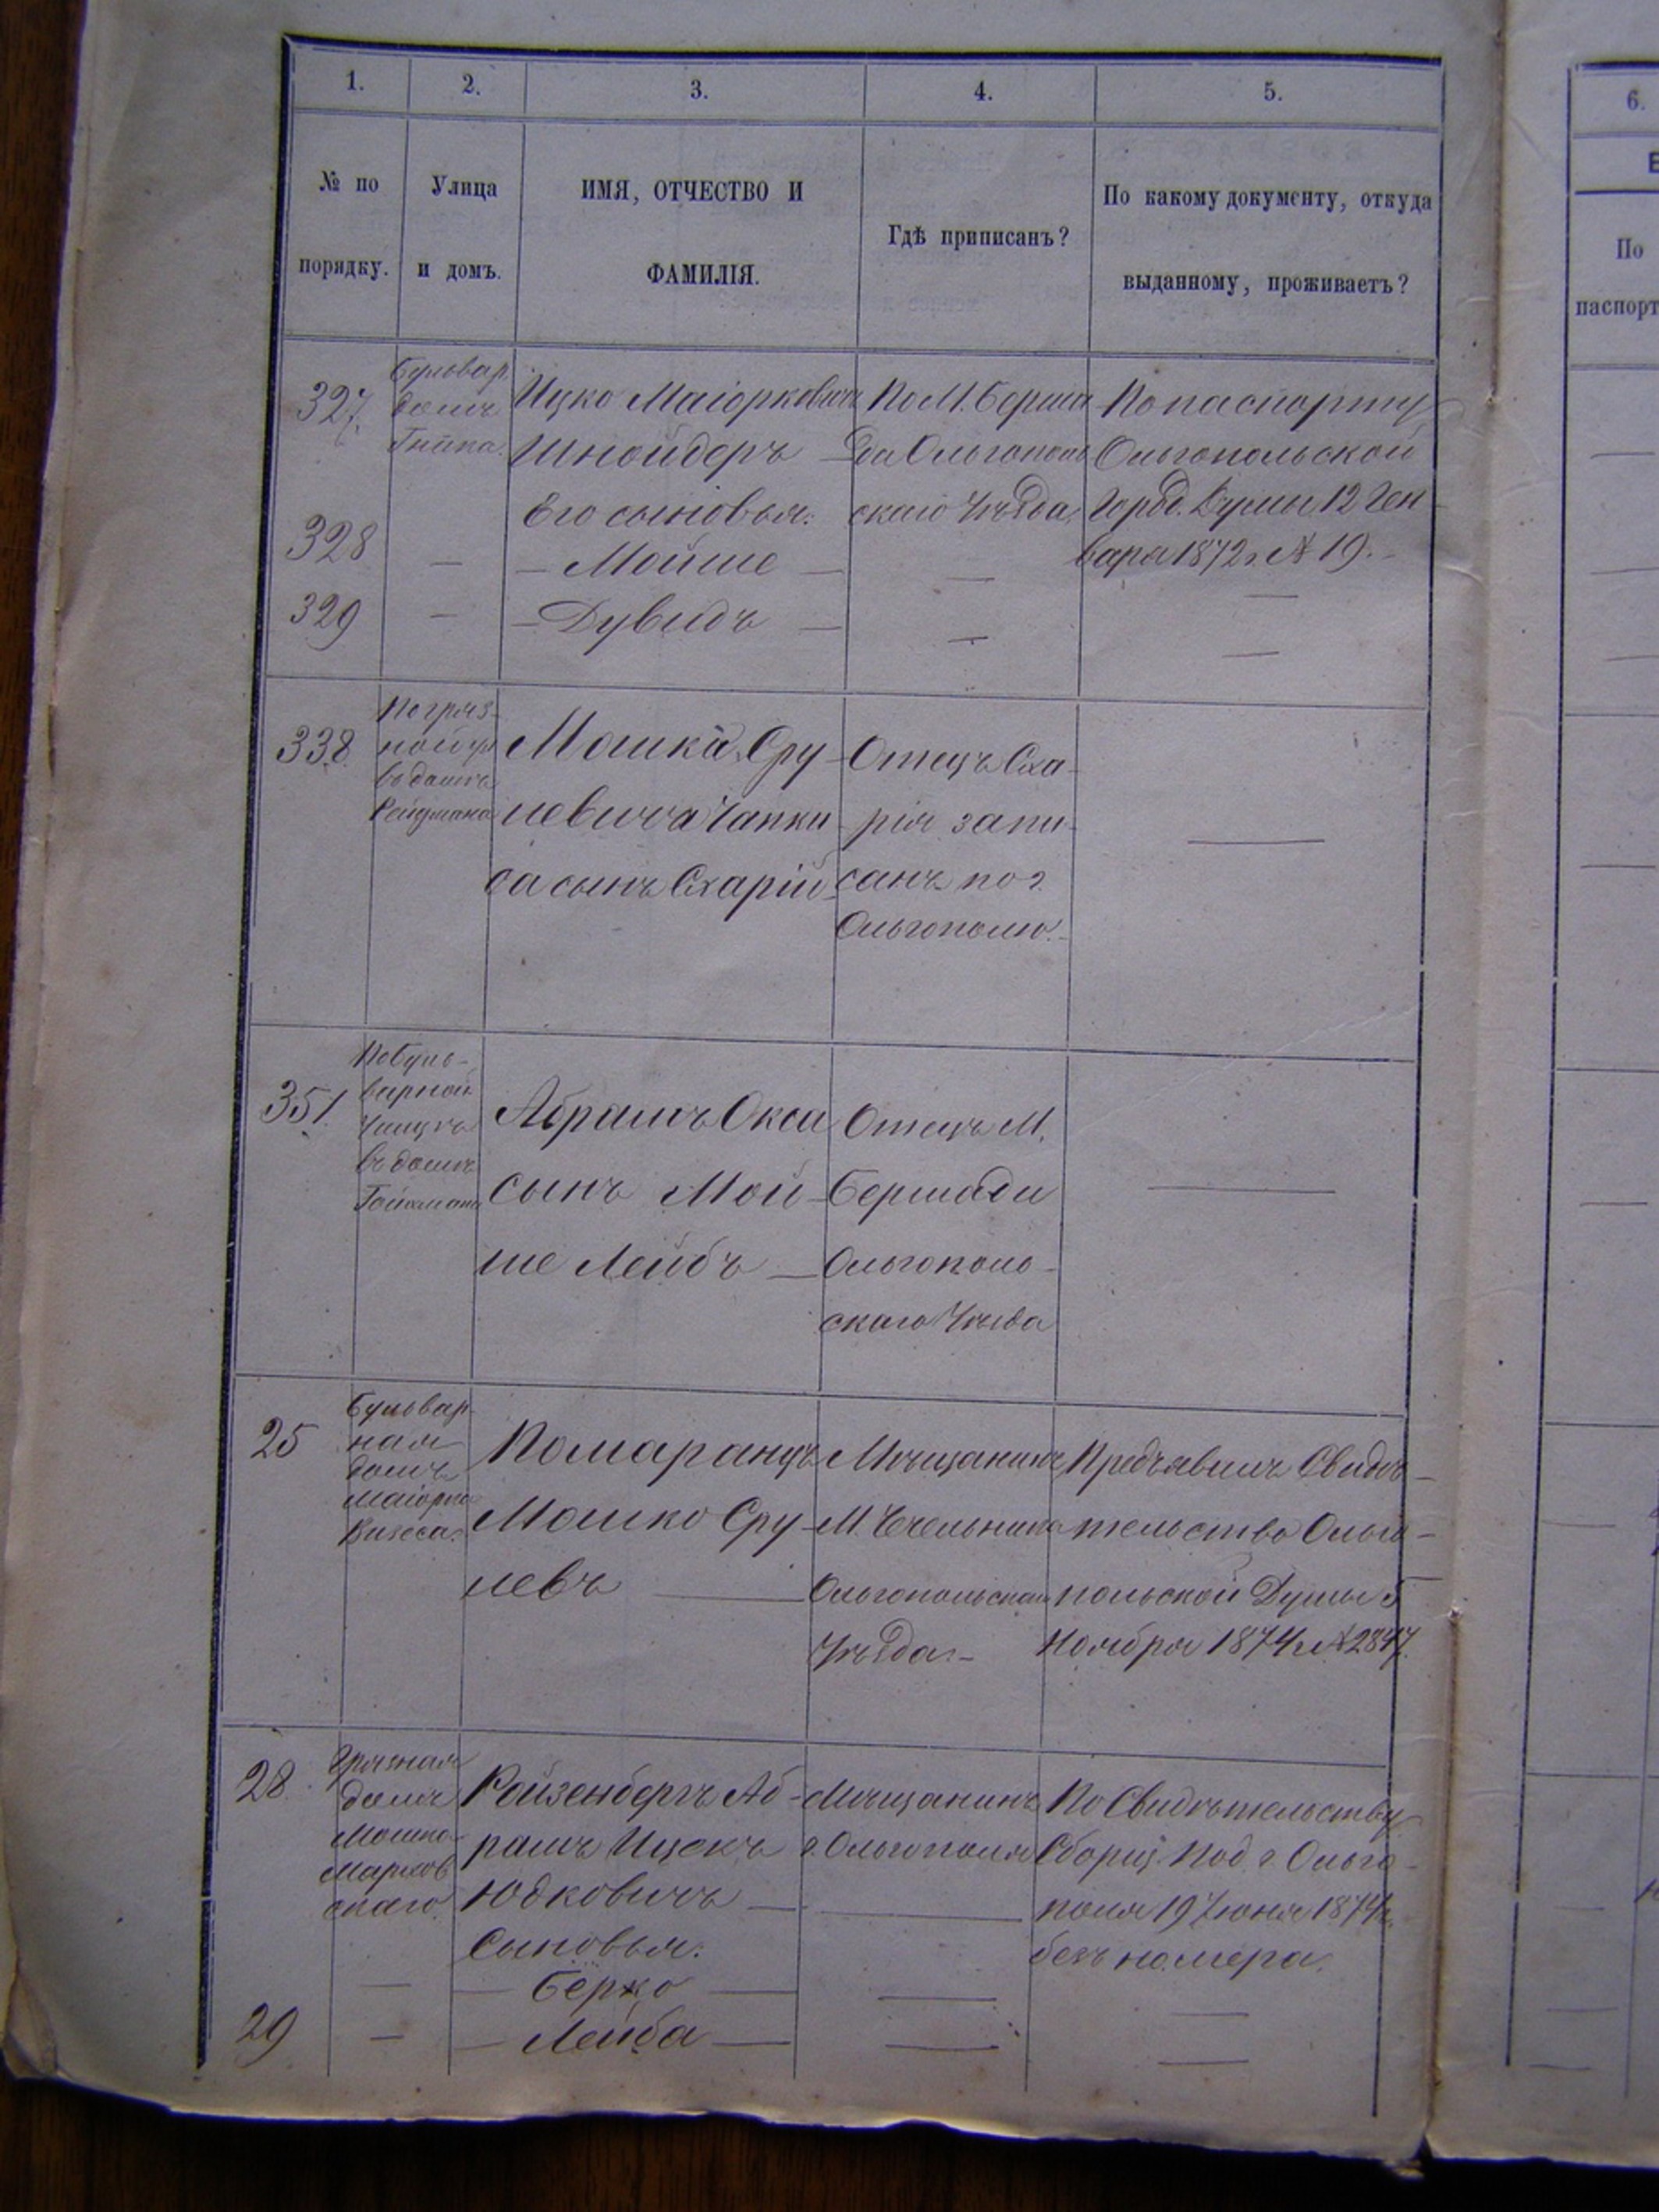 1.
2.
3.
4.
5.
6.
№ по
порядку.
Улица
и домъ.
ИМЯ, ОТЧЕСТВО И
ФАМИЛІЯ.
Гдѣ приписанъ?
По какому документу, откуда
выданному, проживаетъ?
По
паспорт
327.
Бульвар
домъ
Ицко Маіорковичъ
Шнойдеръ
Его сыновья:
По М. Берша
да Ольгополь
скаго Уѣзда,
По паспорту
Ольгопольской
Город. Думы 12 Ген
варя 1872 г. № 19.-
328
- Мойше -
329
- Дувидъ -
338.
По гряз-
ной ул
въ домѣ
Рейдмана
Мошка Сру-
левича Чапки-
са сынъ Схарій-
Отецъ Сха-
рія запи-
санъ по г.
Ольгополю.-
351.
По Буль-
варной
Улицѣ
въ домѣ
Абрамъ Окса
сынъ Мой-
ше Лейбъ -
Отецъ М.
Бершади
Ольгополь-
скаго Уѣзда
25
Бульвар-
ная
домъ
Маіорка
Помаранцъ
Мошко Сру-
левъ
Мѣщанинъ
М. Чечельника
Ольгопольскаго
Уѣзда.-
Предъявилъ Свидѣ-
тельство Ольго-
польской Думы 5
Ноября 1874 г. № 2847.
28.
Грязная
домъ
Мошка
Марков
скаго.
Ройзенбергъ Аб-
рамъ Ицекъ
Юдковичъ -
Сыновья:
- Берко -
Мѣщанинъ
г. Ольгополя
По Свидѣтельству
Сборщ. Под. г. Ольго-
поля 19 Іюня 1874 г.
безъ номера.
29
- Лейба -